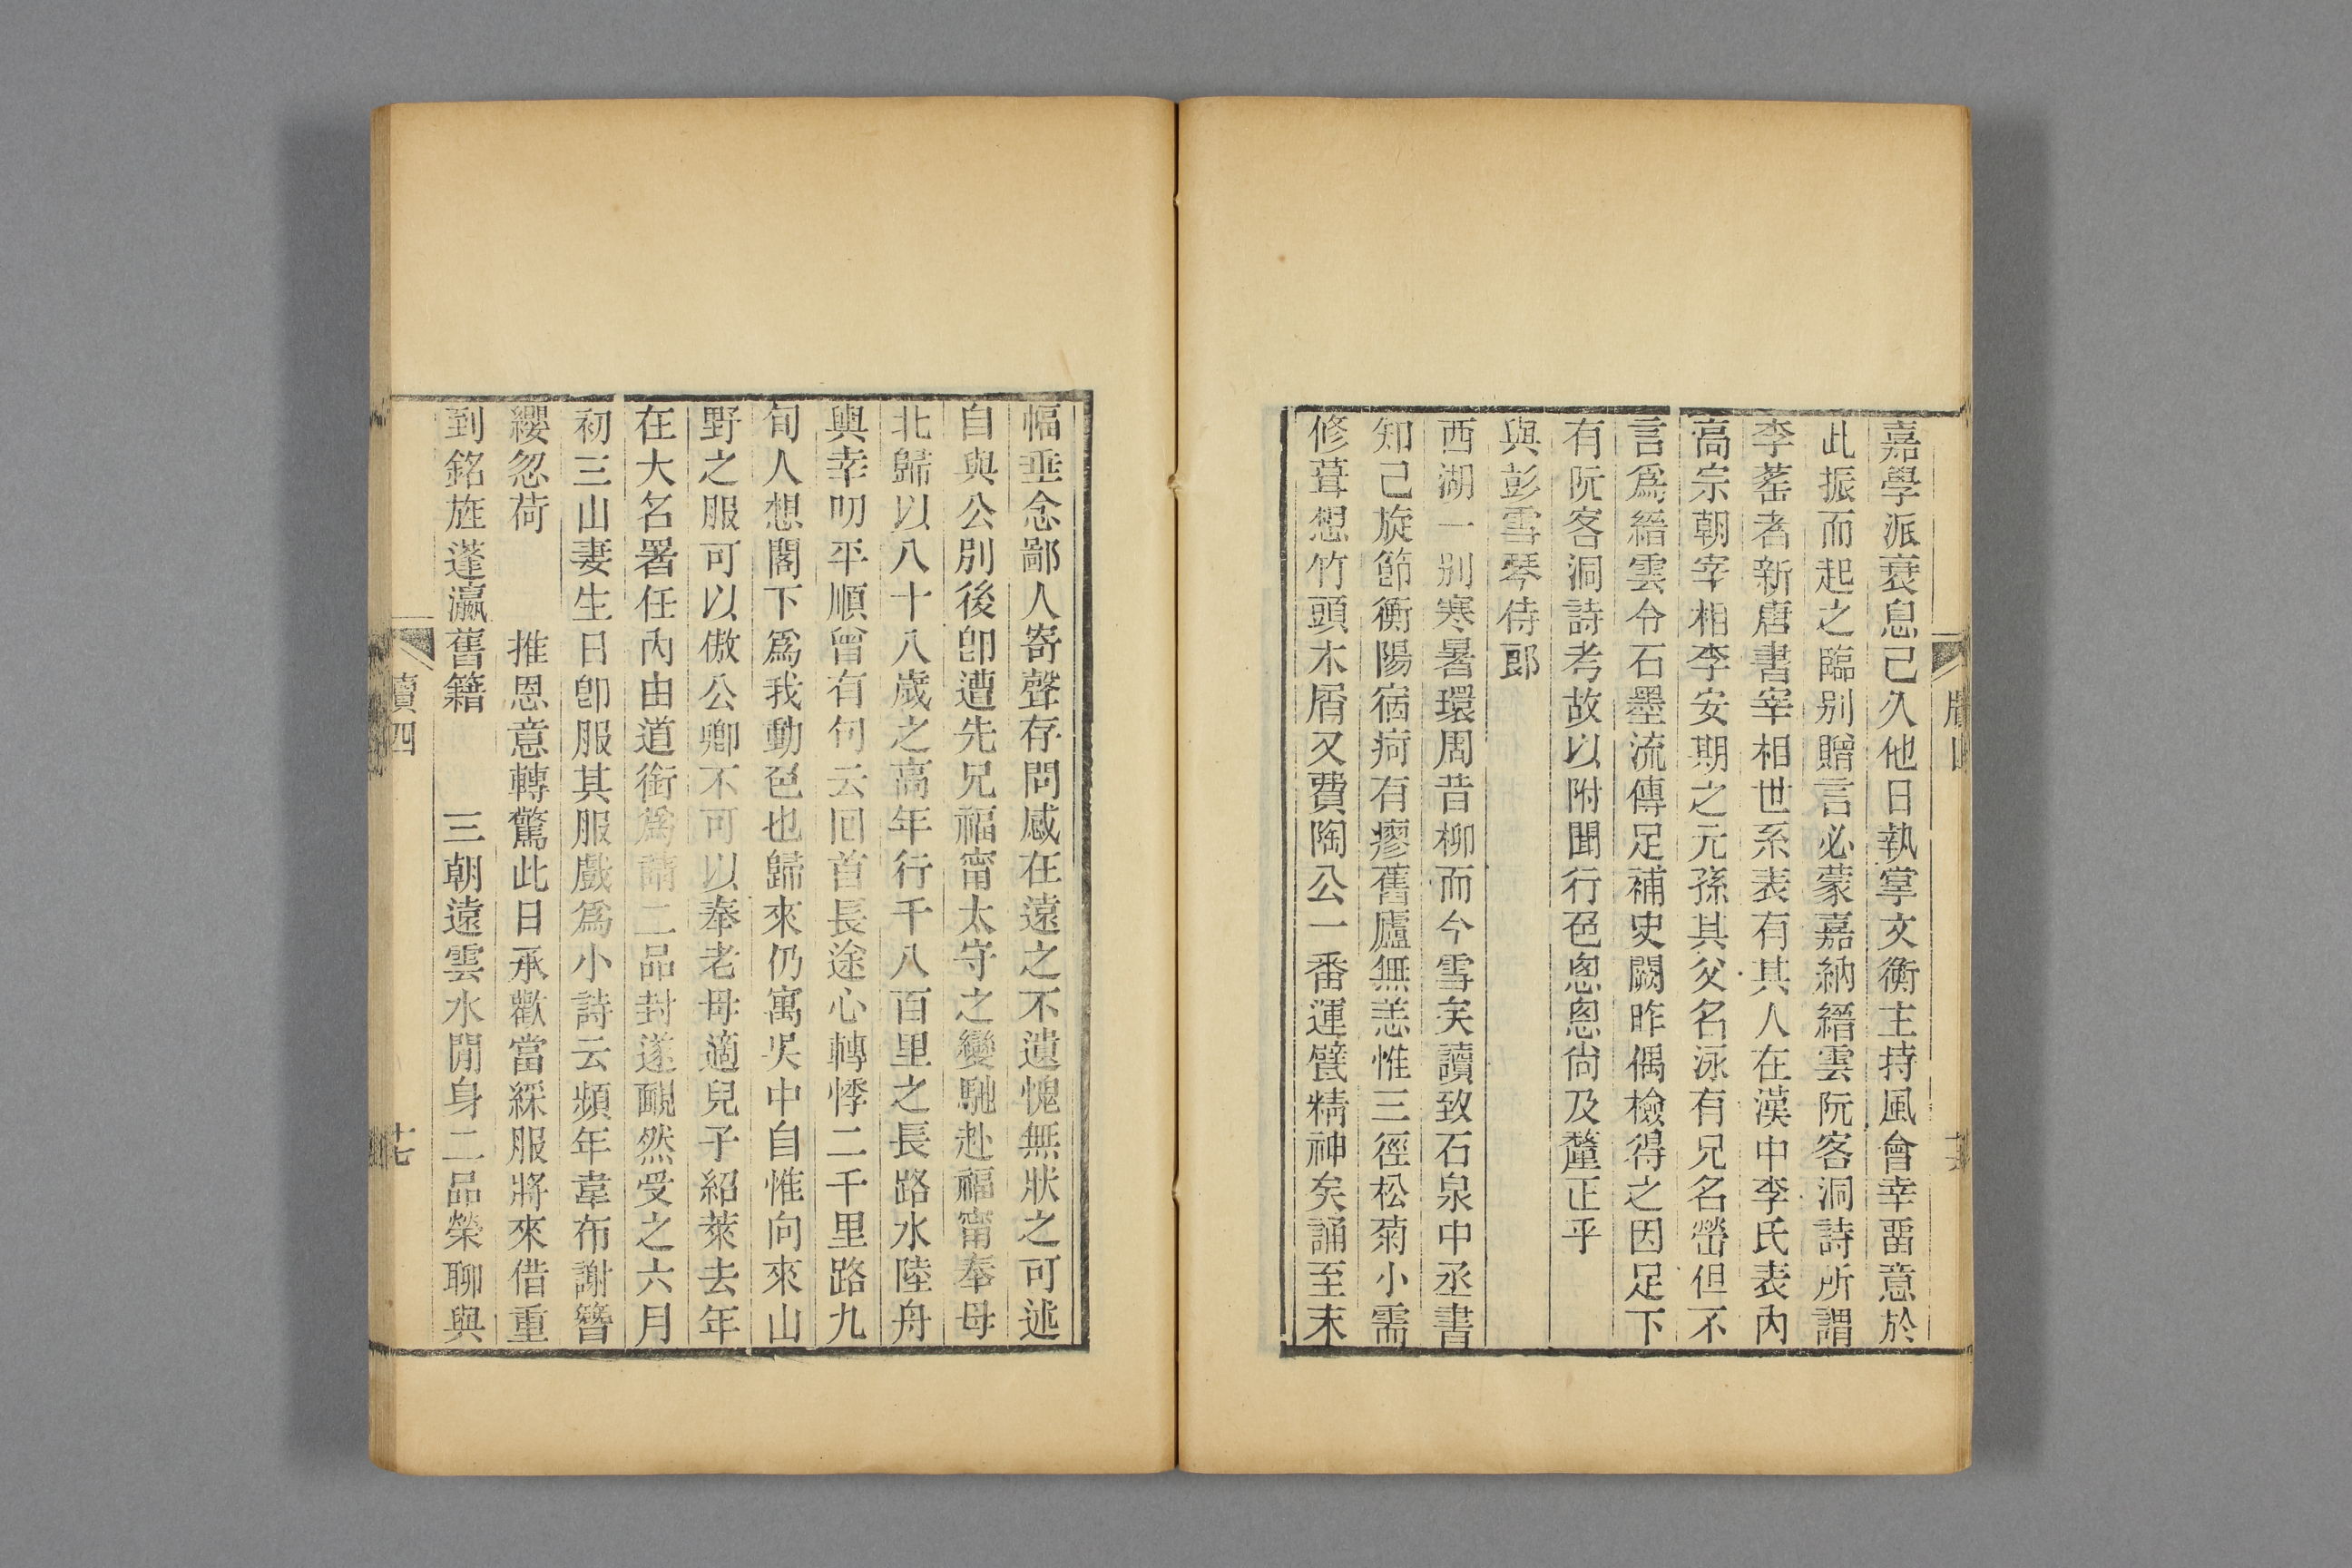 嘉學派衰息己久他日執掌文衡主持風會幸畱意於
此振而起之臨別贈言必蒙嘉納縉雲阮客洞詩所謂
李蒕者新唐書宰相世系表有其人在漢中李氏表內
高宗朝宰相李安期之元孫其父名泳有兄名瑩但不
言爲縉雲令石墨流傳足補史闕昨偶檢得之因足下
有阮客洞詩考故以附聞行色悤悤尙及釐正乎
與彭雪琴侍郎
西湖一別寒暑環周昔柳而今雪矣讀致石泉中丞書
知己旋節衡陽宿疴有瘳舊廬無恙惟三徑松菊小需
修葺想竹頭木屑又費陶公一番運甓精神矣誦至末
幅垂念鄙人寄聲存問感在遠之不遺愧無狀之可述
自與公別後卽遭先兄福甯太守之變馳赴福甯奉母
北歸以八十八歲之高年行千八百里之長路水陸舟
輿幸叨平順曾有句云回首長途心轉悸二千里路九
旬人想閣下爲我動色也歸來仍寓吳中自惟向來山
野之服可以傲公卿不可以奉老母適兒子紹萊去年
在大名署任內由道銜爲請二品封遂靦然受之六月
初三山妻生日卽服其服戲爲小詩云頻年韋布謝簪
纓忽荷 推恩意轉驚此日承歡當綵服將來借重
到銘旌蓬瀛舊籍 三朝遠雲水閒身二品榮聊與
牘四